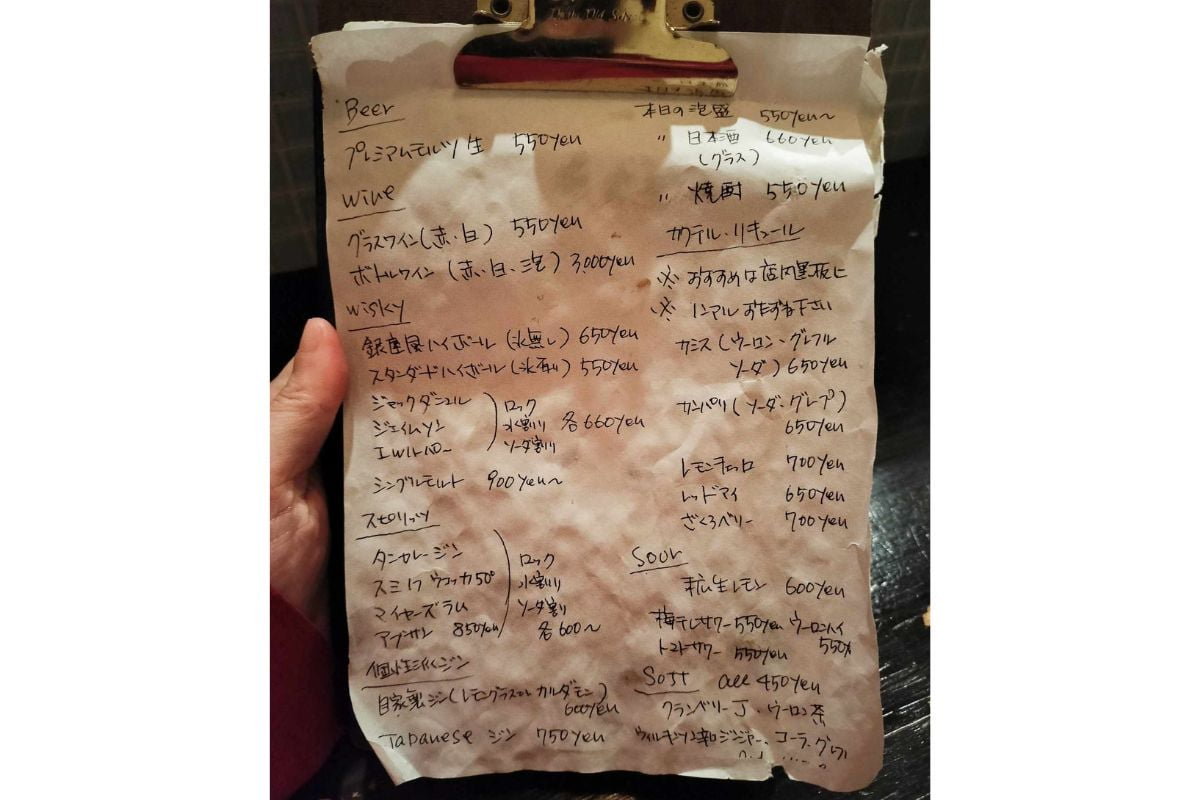 Beer
プレミアムモルツ生 550yen
Wine
グラスワイン(赤・白) 550yen
ボトルワイン (赤・白・泡) 3,000yen
Wisky
銀座屋ハイボール (氷無し) 650yen
スタンダードハイボール (氷有り) 550yen
ジャックダニエル
ジェイムソン
I.Wハーパー
ロック
水割り 各660yen
ソーダ割り
シングルモルト 900yen〜
スピリッツ
タンカレージン
スミノフウォッカ50°
マイヤーズラム
アブサン 850yen
ロック
水割り
ソーダ割り
各600〜
個性派ジン
自家製ジン(レモングラスor カルダモン)
600yen
Japanese ジン 750yen
本日の泡盛 550yen〜
〃 日本酒 660yen
(グラス)
〃 焼酎 550yen
カクテル・リキュール
※ おすすめは店内黒板に
※ ノンアル おたずね下さい
カシス (ウーロン・グレフル
ソーダ) 650yen
カンパリ (ソーダ・グレフ)
650yen
レモンチェッロ 700yen
レッドアイ 650yen
ざくろベリー 700yen
Sour
生レモン 600yen
梅干しサワー 550yen ウーロンハイ
550y
トマトサワー 550yen
Soft all 450yen
クランベリーJ・ウーロン茶
ウィルキンソン辛口ジンジャー、コーラ、グレフ